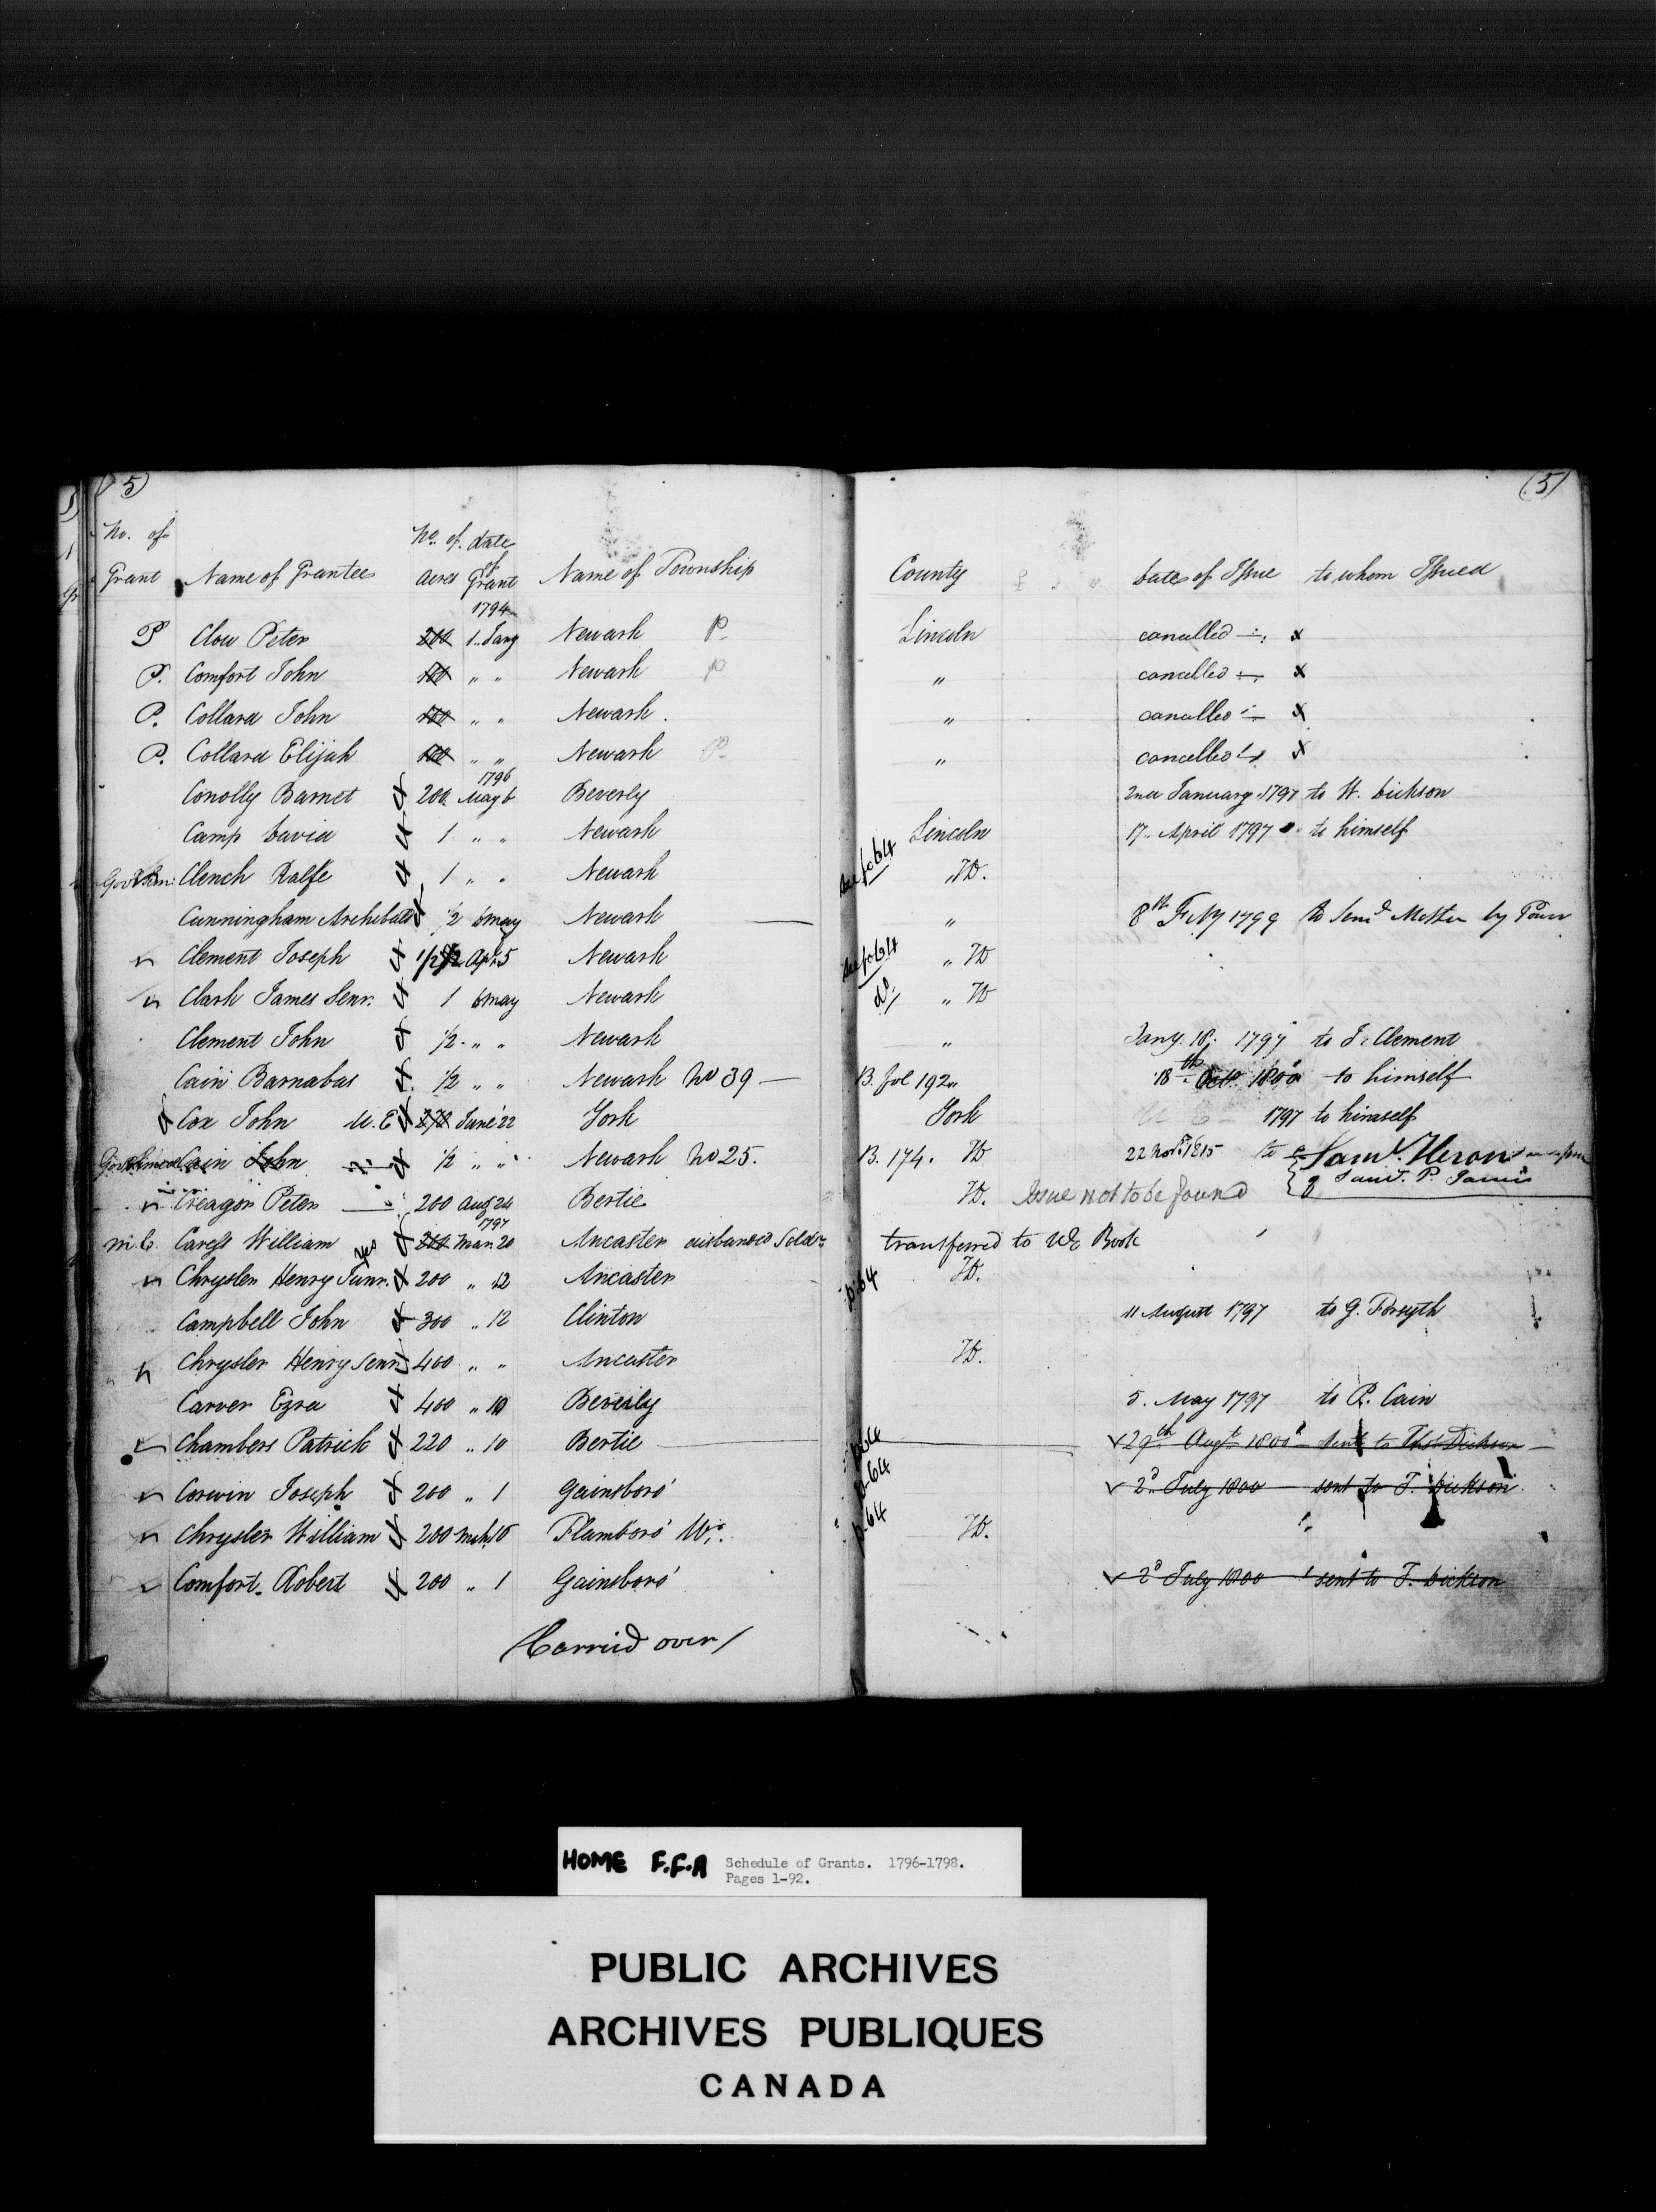 (5) (5)
No. of No. of date
Grant Name of Grantee acres of Grant Name of Township County Date of Issue to whom Issued
1794
P Clow Peter 200 1.. Jany Newark P. Lincoln cancelled x
P. Comfort John 100 " " Newark P " cancelled x
P. Collard John 100 " " Newark. " cancelled x
P. Collard Elijah 100 " " Newark P. " cancelled x
1796
Conolly Barnet 200 May 6 Beverly 2nd January 1797 to W. Dickson
Camp David 1 " " Newark Lincoln 17.. April 1797 to himself
Clench Ralfe 1 " " Newark see fo 64 " Th.
Cunningham Archibald 1/2 6 May Newark " 8th Feby 1799 to
Clement Joseph 1/2 Apl. 5 Newark see fo 64 " Th
Clark James Senr. 1 6 May Newark do/ " Th
Clement John 1/2 " " Newark " Jany. 18. 1797 to J. Clement
Cain Barnabas 1/2 " " Newark No 39 — B. fol 192 " 18th Octo. 1800 to himself
Cox John U.E 270 June 22 York York U E 1797 to himself
Cain John 1/2 " " Newark No 25. B. 174. Th 22 Nov. 1815 to Saml. Heron
Creagon Peter 200 Aug 24 Bertie Th. Issue not to be found Saml. P. Jarvis
1797
M.C. Caress William Yes 200 Mar. 20 Ancaster disbanded Soldr. transferred to We Book
Chrysler Henry Junr. 200 " 12 Ancaster p. 64 Th.
Campbell John 300 " 12 Clinton 11 August 1797 to G. Forsyth
Chrysler Henry Senr. 400 " " Ancaster Th.
Carver Ezra 400 " 10 Beverly 5. May 1797 to P. Cain
Chambers Patrick 220 " 10 Bertie p. 64 29th Augt. 1800 sent to Thos. Dickson
Corwin Joseph 200 " 1 Gainsboro' p. 64 2d July 1800 sent to T. Dickson
Chrysler William 200 Mch. 10 Flamboro' W. p. 64 Th.
Comfort. Robert 200 " 1 Gainsboro' 2d July 1800 sent to T. Dickson
/Carried over/
HOME F.F.A Schedule of Grants. 1796-1798.
Pages 1-92.
PUBLIC ARCHIVES
ARCHIVES PUBLIQUES
CANADA